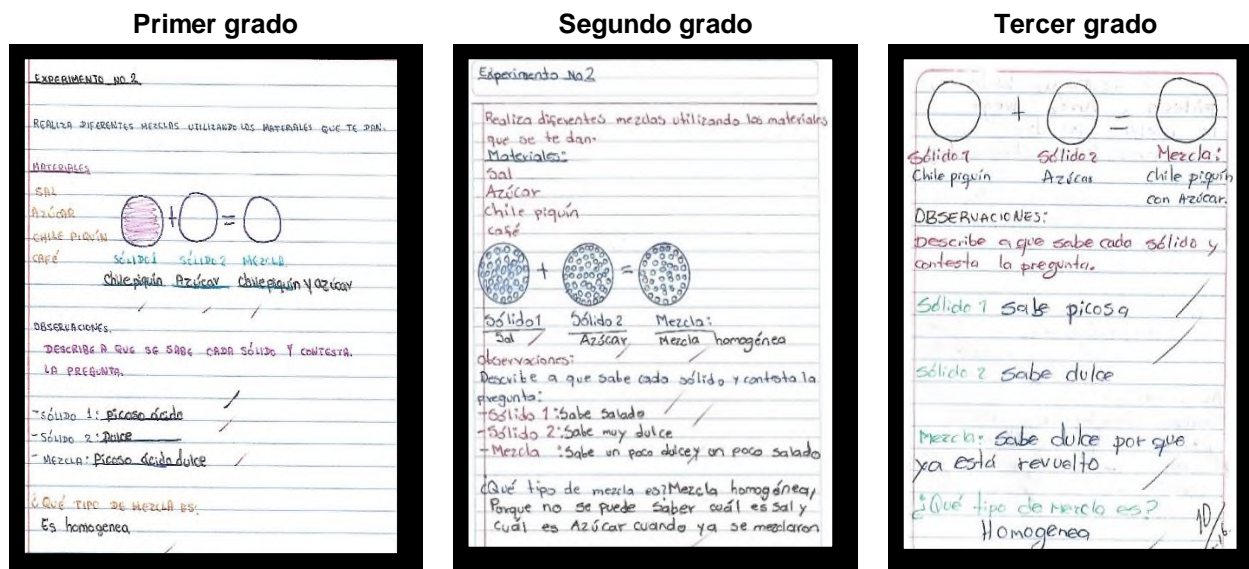 Primer grado
EXPERIMENTO NO. 2
REALIZA DIFERENTES MEZCLAS UTILIZANDO LOS MATERIALES QUE TE DAN.
MATERIALES
SAL
AZÚCAR
CHILE PIQUÍN
CAFÉ
+ =
SÓLIDO 1 SÓLIDO 2 MEZCLA
Chile piquín Azúcar Chile piquín y azúcar
OBSERVACIONES.
DESCRIBE A QUE SE SABE CADA SÓLIDO Y CONTESTA.
LA PREGUNTA.
-SÓLIDO 1: Picoso ácido
-SÓLIDO 2: Dulce
- MEZCLA: Picoso ácido dulce
¿QUÉ TIPO DE MEZCLA ES:
Es homogenea
Segundo grado
Experimento No.2
Realiza diferentes mezclas utilizando los materiales
que se te dan.
Materiales:
Sal
Azúcar
chile piquín
café
+ =
Sólido1 Sólido 2 Mezcla:
Sal Azúcar Mezcla homogénea
observaciones:
Describe a que sabe cada sólido y contesta la
pregunta:
-Sólido 1:Sabe salado
-Sólido 2:Sabe muy dulce
-Mezcla :Sabe un poco dulce y un poco salado
¿Qué tipo de mezcla es?Mezcla homogénea,
Porque no se puede saber cuál es sal y
cuál es Azúcar cuando ya se mezclaron
Tercer grado
+ =
Sólido 1 Sólido 2 Mezcla:
Chile piquín Azúcar chile piquín
con Azúcar.
OBSERVACIONES:
Describe a que sabe cada sólido y
contesta la pregunta.
Sólido 1 Sabe picosa
Sólido 2 Sabe dulce
Mezcla: Sabe dulce por que
ya está revuelto
¿Qué tipo de mezcla es?
Homogenea
10